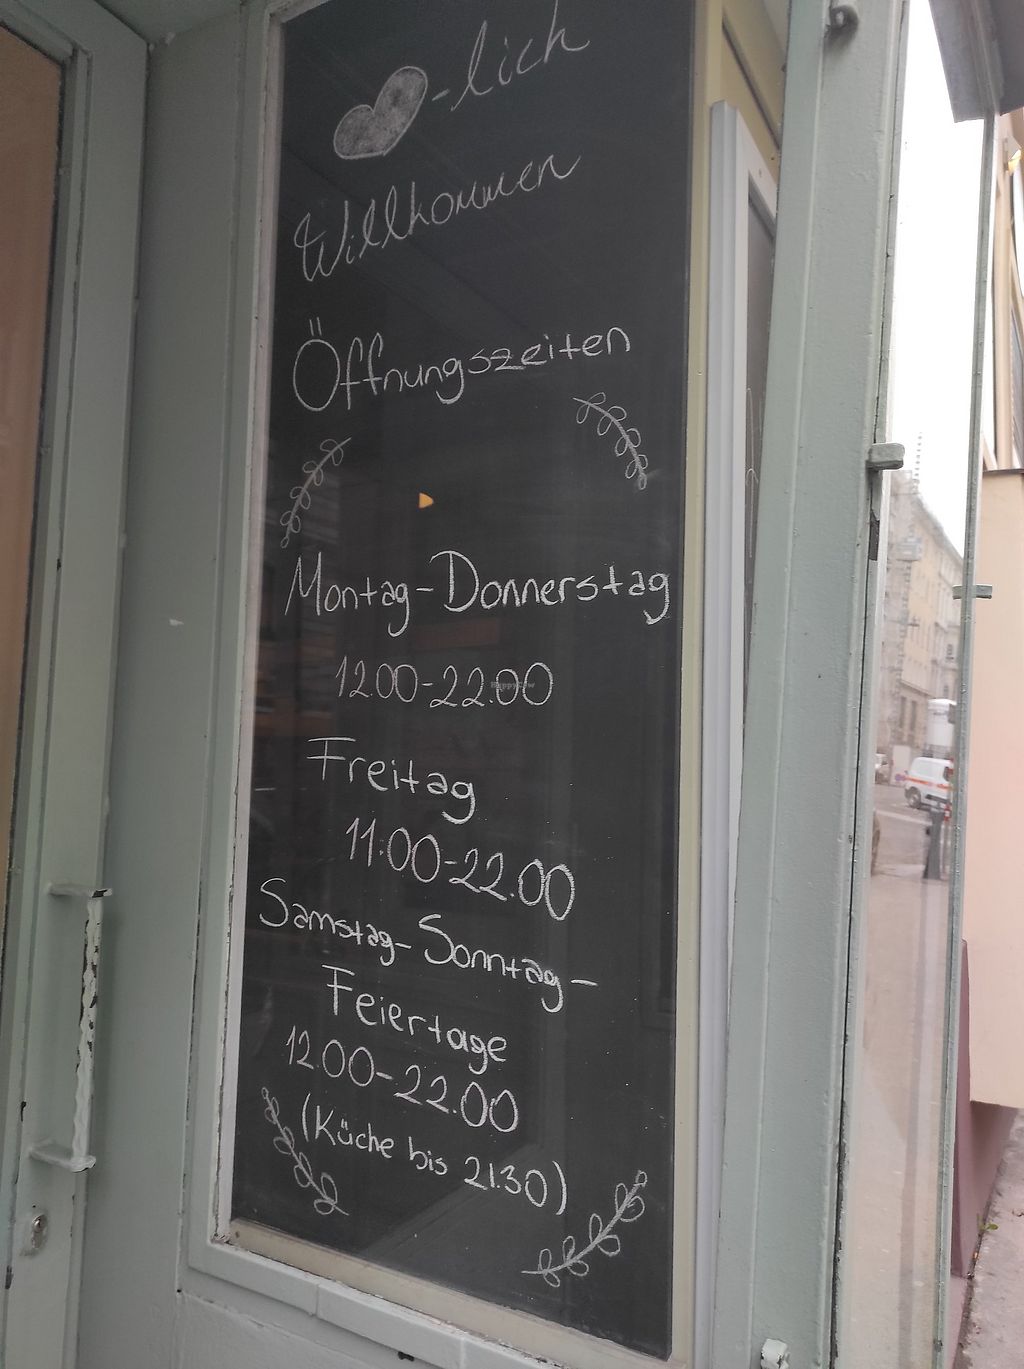 -lich
Willkommen
Öffnungszeiten
Montag-Donnerstag
12.00-22.00
HappyCow
Freitag
11:00-22.00
Samstag-Sonntag-
Feiertage
12.00-22.00
(Küche bis 21.30)